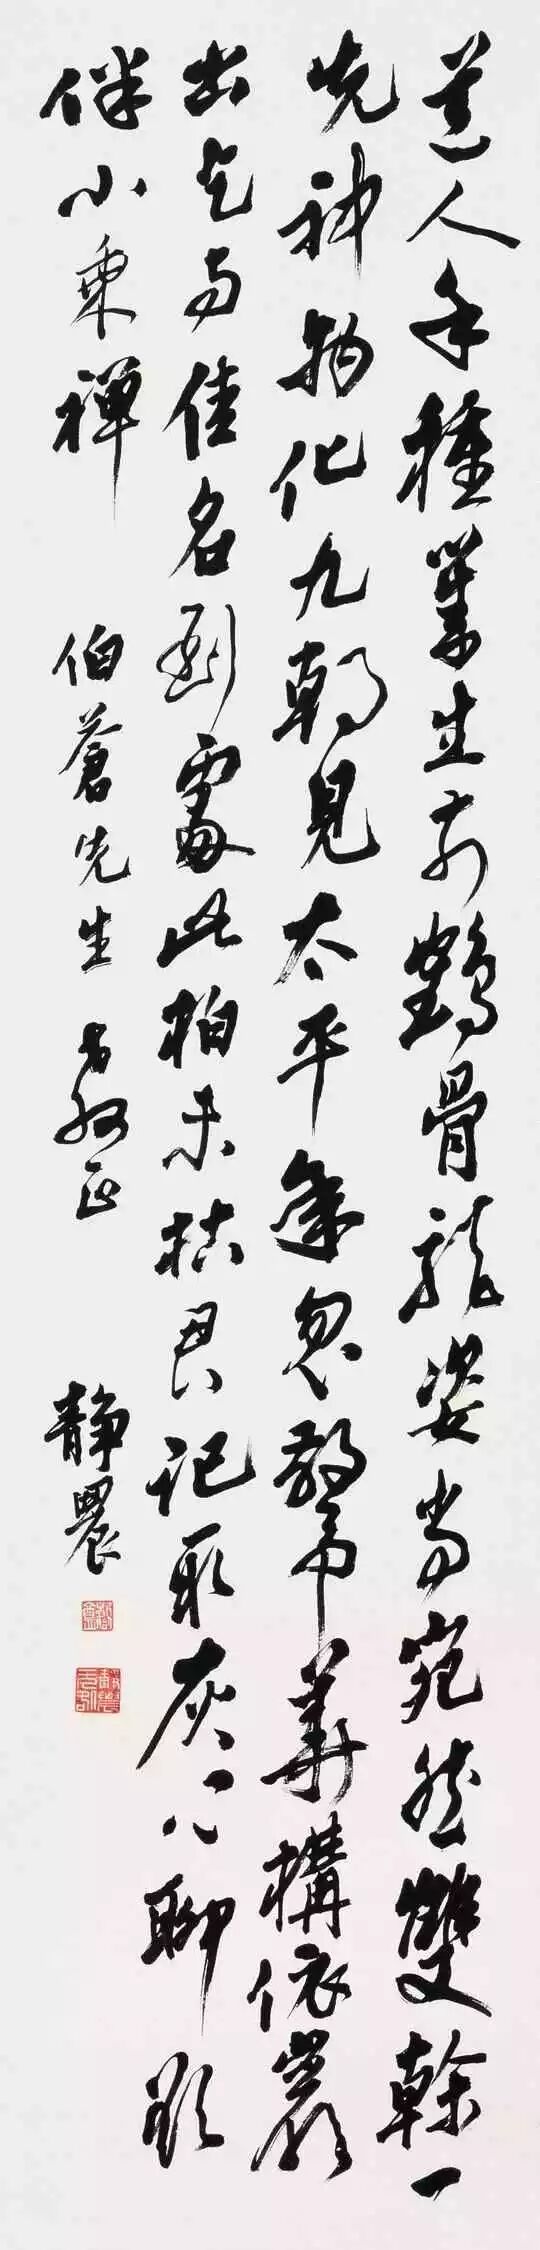 道人手種幾生前鶴骨龍姿尚宛然雙幹一
先神物化九朝見太平年忽驚華構依巖
出乞与佳名到處此柏未枯君記取灰心聊
伴小乘禪
伯蒼先生 教正
靜農